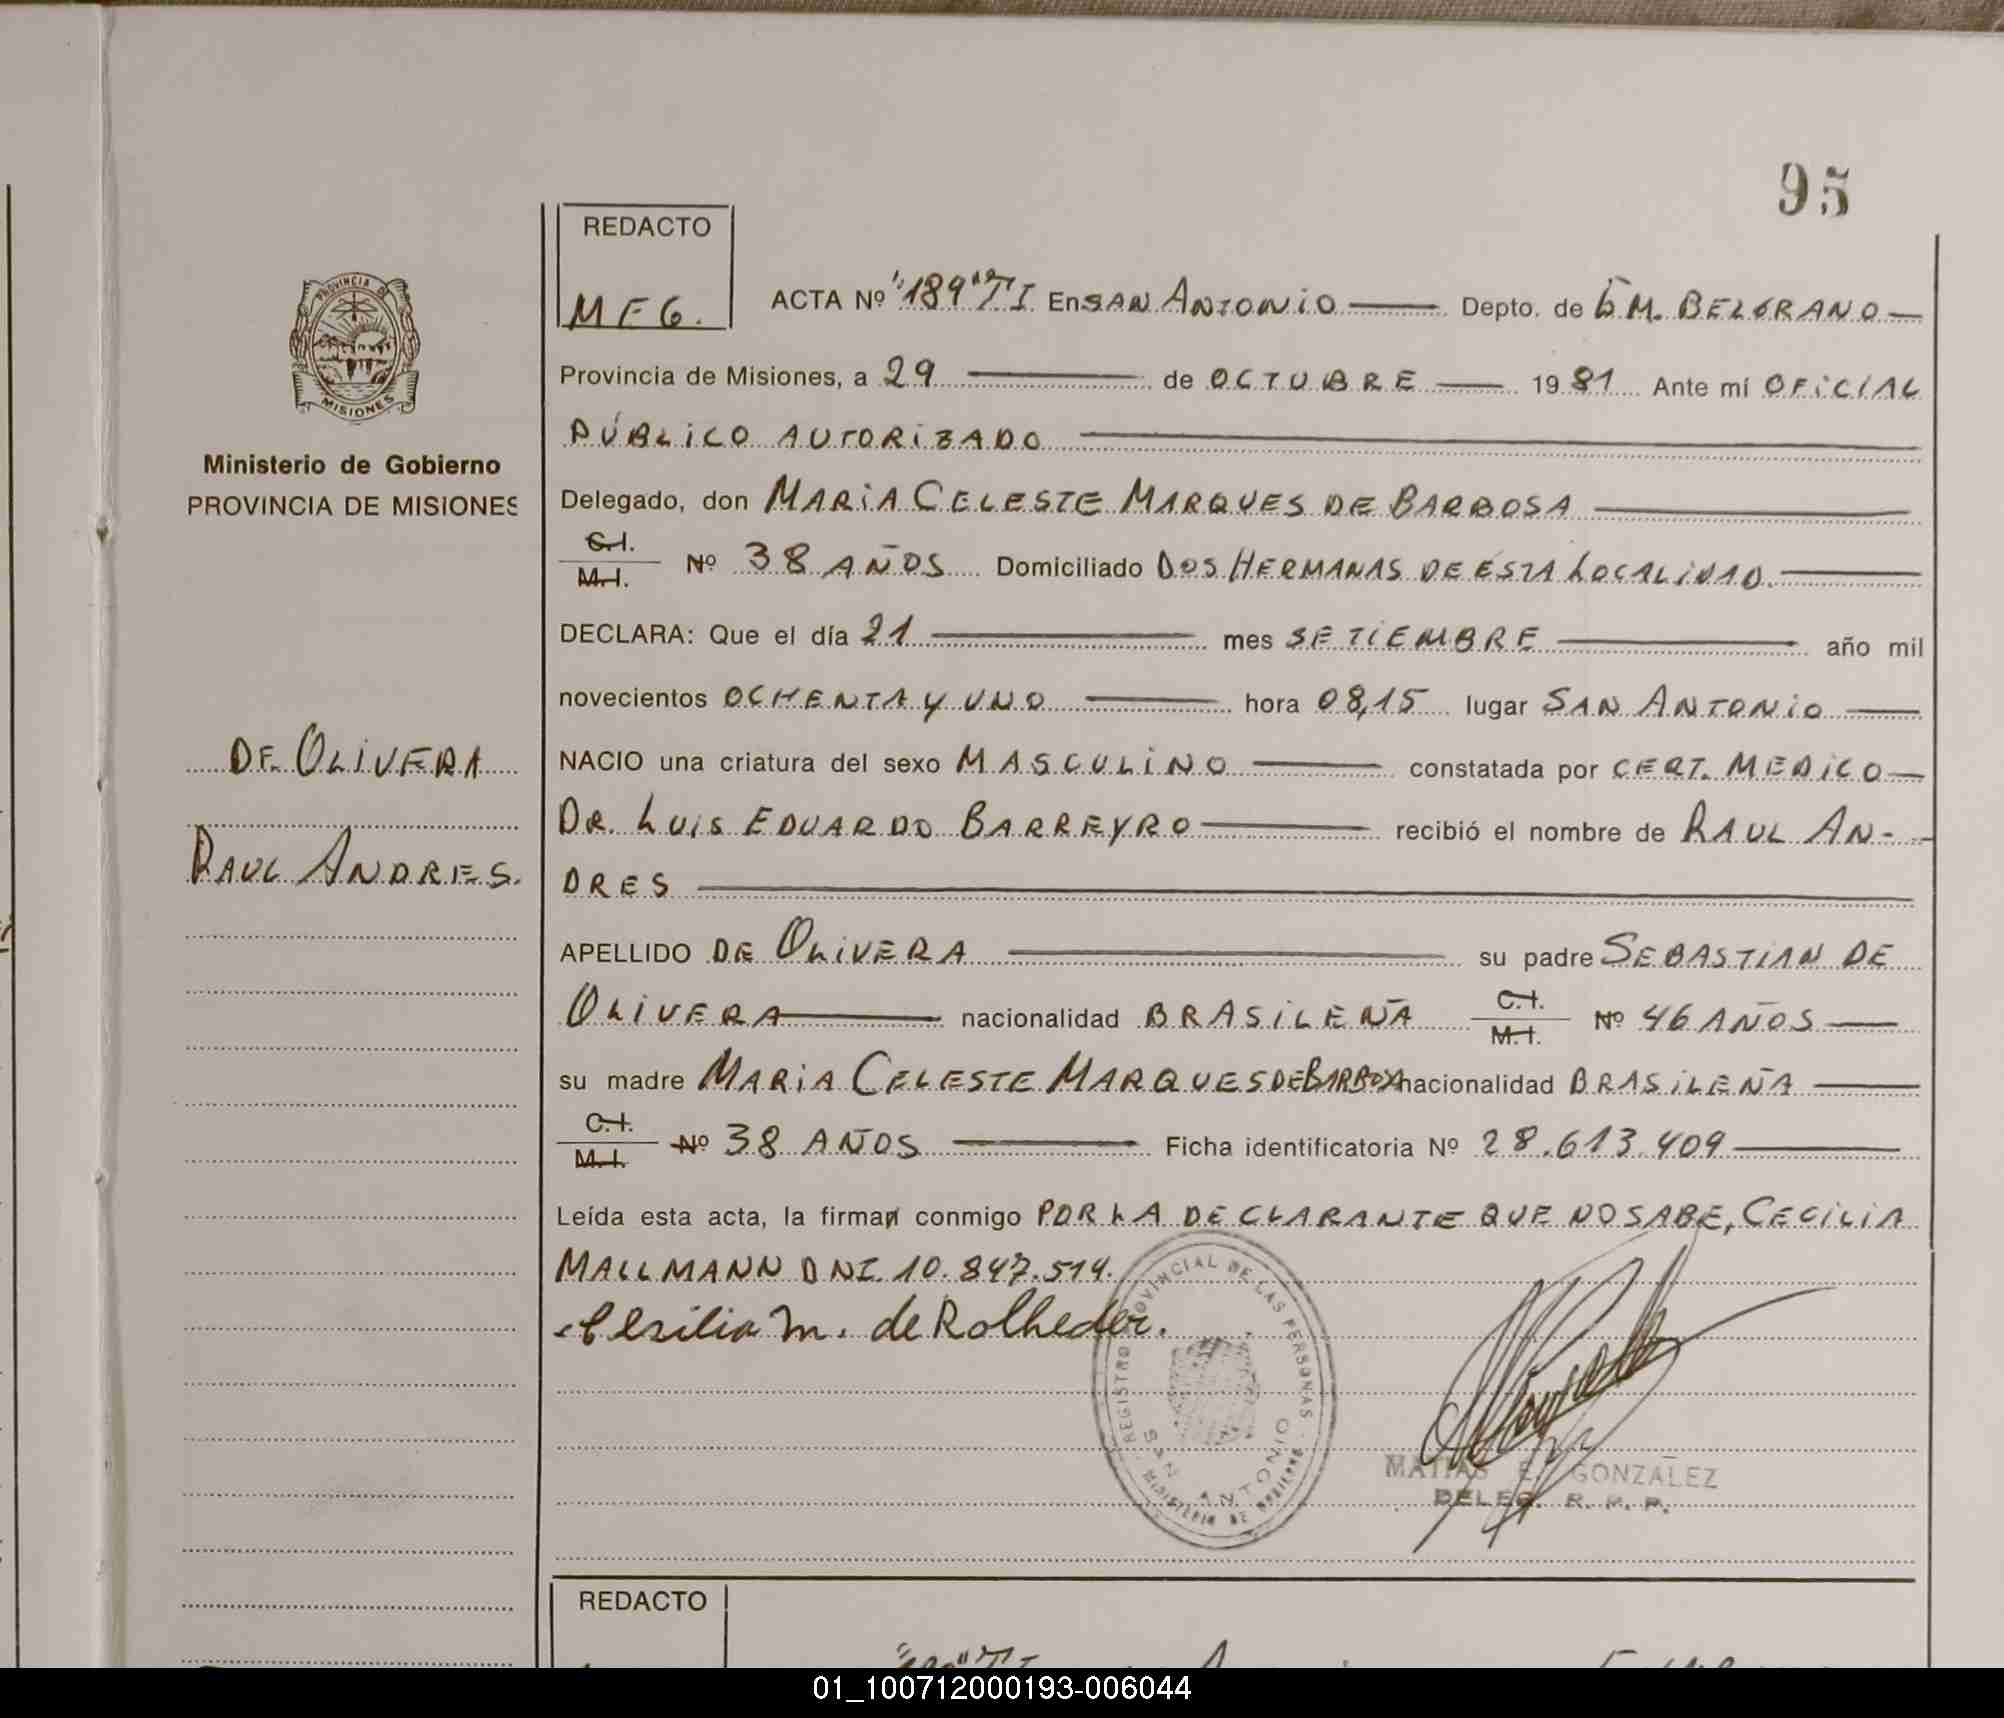 95
REDACTO
MEG.
ACTA Nº "189" T I En SAN ANTONIO Depto. de G M. BELGRANO
Provincia de Misiones, a 29 de OCTUBRE 1981 Ante mí OFICIAL
PÚBLICO AUTORIZADO
Delegado, don MARIA CELESTE MARQUES DE BARBOSA
C.I. M.I. Nº 38 AÑOS Domiciliado DOS HERMANAS DE ESTA LOCALIDAD.
DECLARA: Que el día 21 mes SETIEMBRE año mil
novecientos OCHENTA Y UNO hora 08,15 lugar SAN ANTONIO
NACIO una criatura del sexo MASCULINO constatada por CERT. MEDICO
DR. LUIS EDUARDO BARREYRO recibió el nombre de RAUL AN-
DRES
APELLIDO DE OLIVERA su padre SEBASTIAN DE
OLIVERA nacionalidad BRASILEÑA C.I. M.I. Nº 46 AÑOS
su madre MARIA CELESTE MARQUES DE BARBOSA nacionalidad BRASILEÑA
C.I. M.I. Nº 38 AÑOS Ficha identificatoria Nº 28.613.409
Leída esta acta, la firman conmigo POR LA DECLARANTE QUE NO SABE, CECILIA
MALLMANN DNI. 10.847.514.
Cesilia M. de Rolheder.
REGISTRO PROVINCIAL DE LAS PERSONAS
SAN ANTONIO
MINISTERIO DE GOBIERNO
MATIAS E. GONZALEZ
DELEG. R. P. P.
PROVINCIA DE
MISIONES
Ministerio de Gobierno
PROVINCIA DE MISIONES
DE OLIVERA
RAUL ANDRES.
REDACTO
01_100712000193-006044